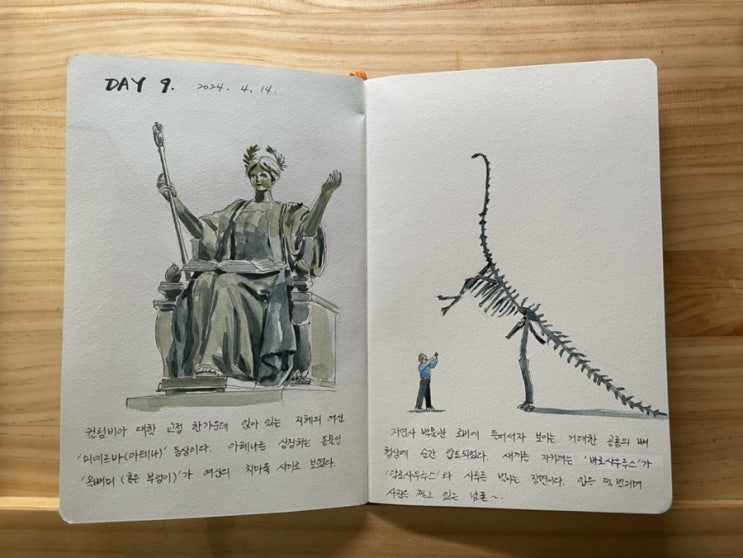 DAY 9.
2024. 4. 14.
컬럼비아 대학 교정 한가운데 앉아 있는 지혜의 여신
'미네르바(아테나)' 동상이다. 아테나를 상징하는 동물인
'올빼미(혹은 부엉이)'가 여신의 치마폭 사이로 보였다.
자연사 박물관 로비에 들어서자 보이는 거대한 공룡의 뼈
형상에 순간 압도되었다. 새끼를 지키려는 '바로사우루스'가
'알로사우루스'와 사투를 벌이는 장면이다. 입을 떡 벌리며
사진을 찍고 있는 남편~.